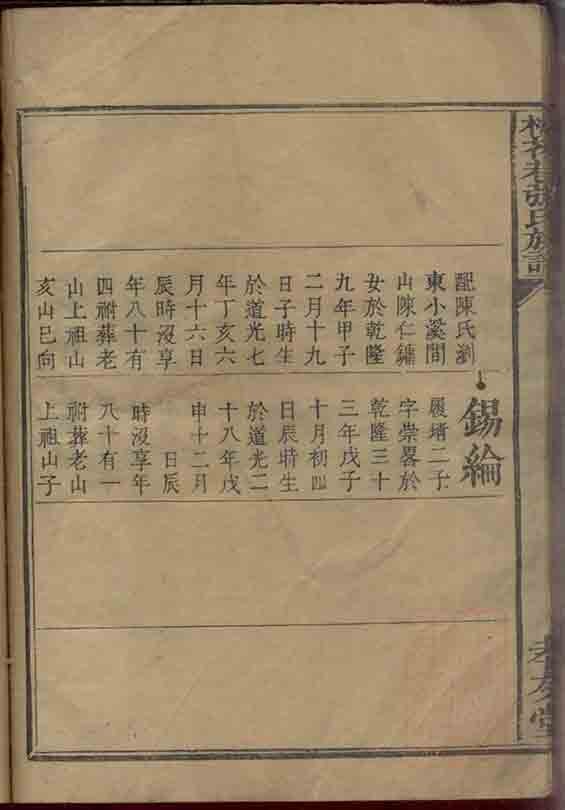 花巷胡氏族譜
孝友堂
配陳氏瀏
東小溪間
山陳仁鏞
女於乾隆
九年甲子
二月十九
日子時生
於道光七
年丁亥六
月十六日
辰時沒享
年八十有
四祔葬老
山上祖山
亥山巳向
錫綸
履堉二子
字崇畧於
乾隆三十
三年戊子
十月初四
日辰時生
於道光二
十八年戊
申十二月
日辰
時沒享年
八十有一
祔葬老山
上祖山子